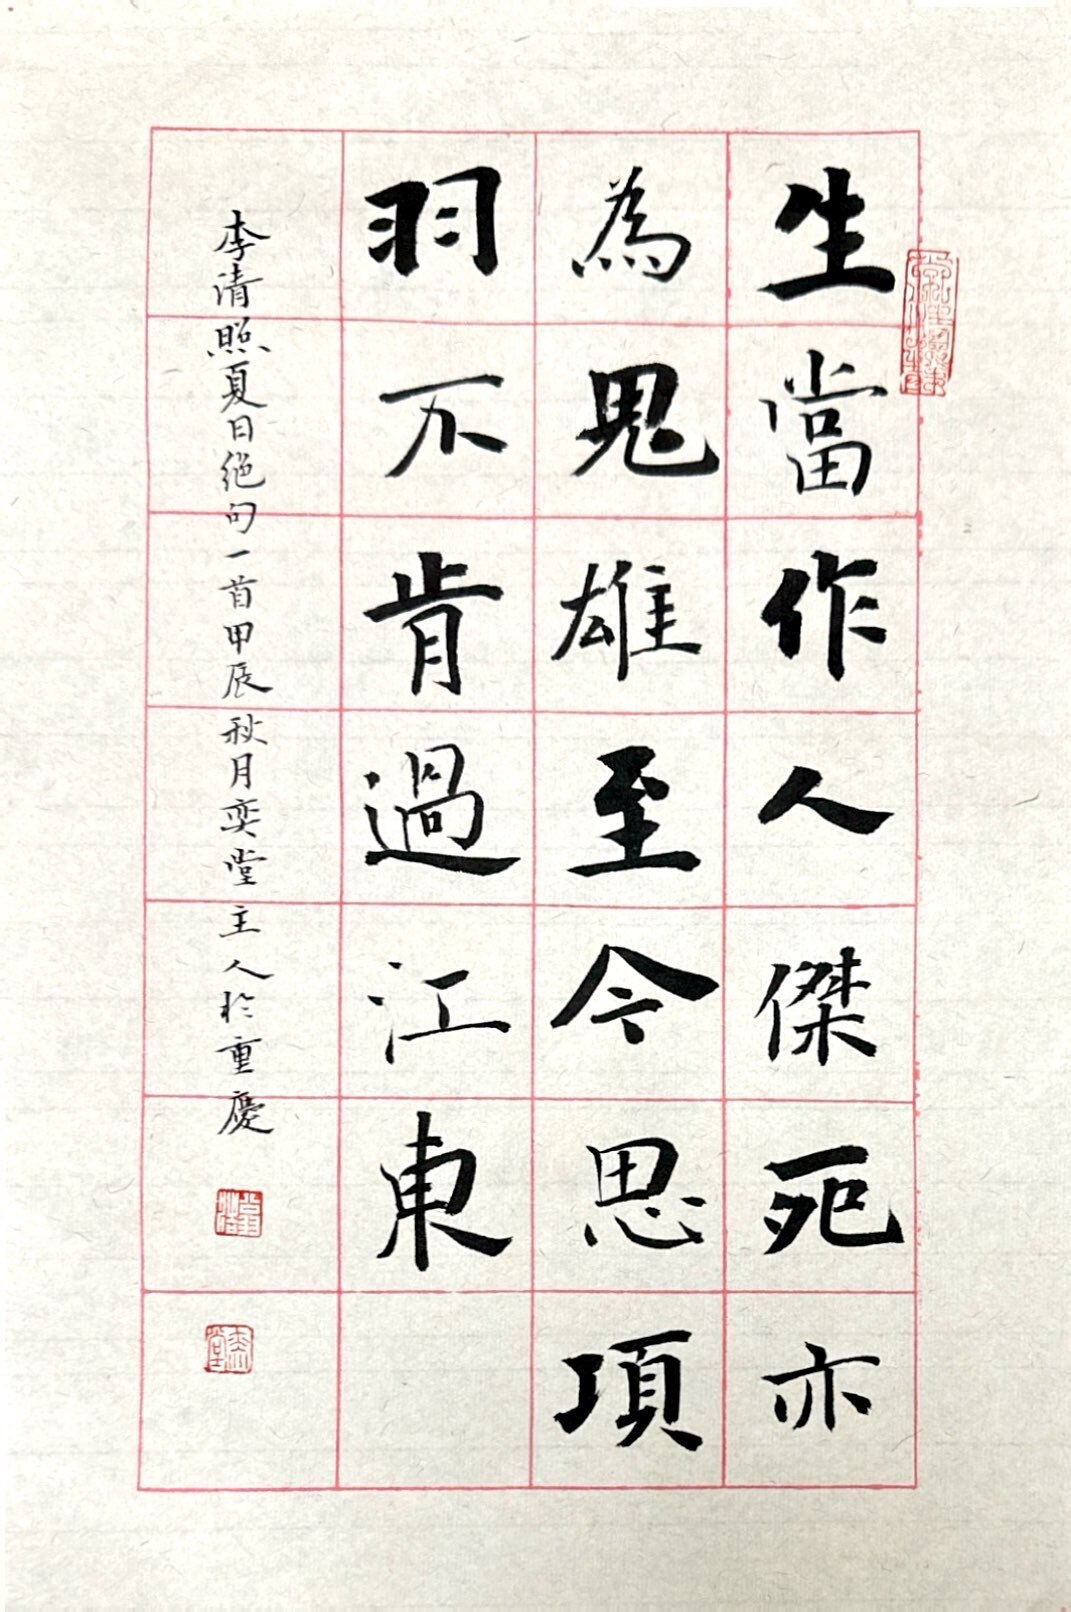 生當作人傑死亦
為鬼雄至今思項
羽不肯過江東
李清照夏日絕句一首甲辰秋月奕堂主人於重慶